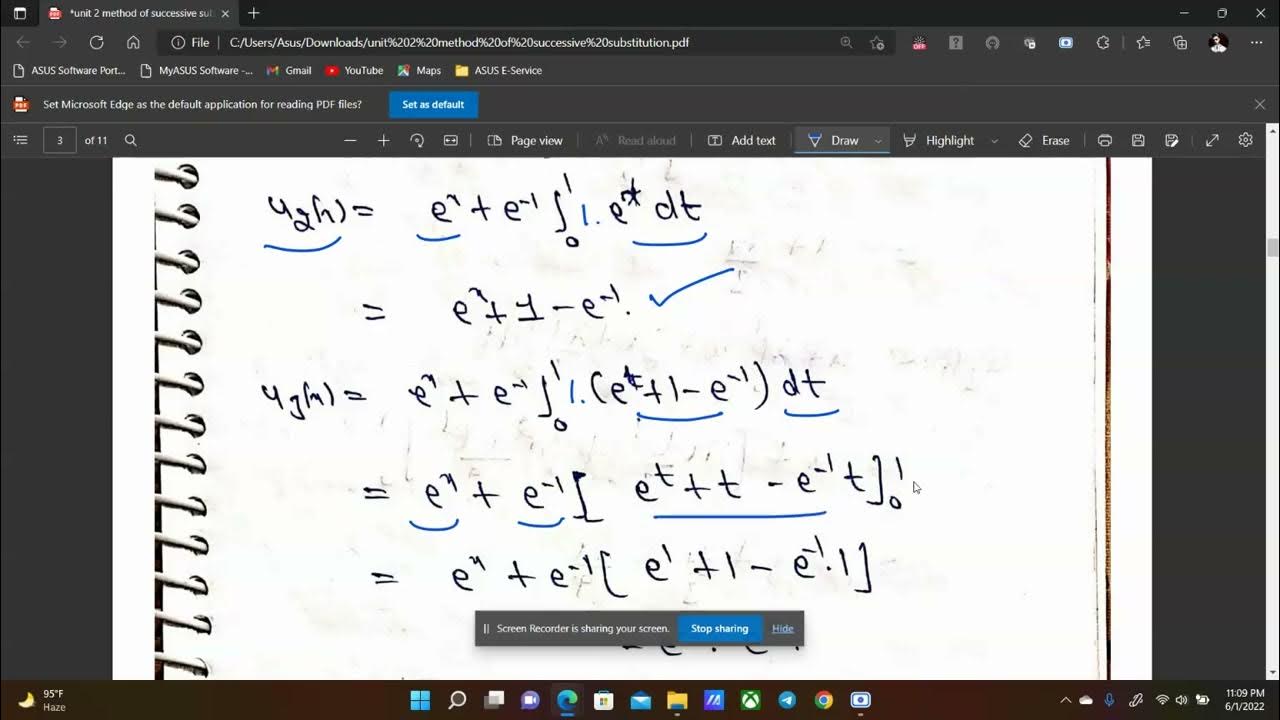 *unit 2 method of successive sub
File C:/Users/Asus/Downloads/unit%202%20method%20of%20successive%20substitution.pdf
OFF
ASUS Software Port... MyASUS Software -... Gmail YouTube Maps ASUS E-Service
PDF Set Microsoft Edge as the default application for reading PDF files? Set as default
3 of 11 Page view Read aloud Add text Draw Highlight Erase
u₂(x) = eˣ + e⁻¹ ∫₀¹ 1. eᵗ dt
= eˣ + 1 − e⁻¹.
u₃(x) = eˣ + e⁻¹ ∫₀¹ 1. (eᵗ + 1 − e⁻¹) dt
= eˣ + e⁻¹ [ eᵗ + t − e⁻¹ t ]₀¹
= eˣ + e⁻¹ [ e¹ + 1 − e⁻¹.1 ]
Screen Recorder is sharing your screen. Stop sharing Hide
95°F
Haze
11:09 PM
6/1/2022